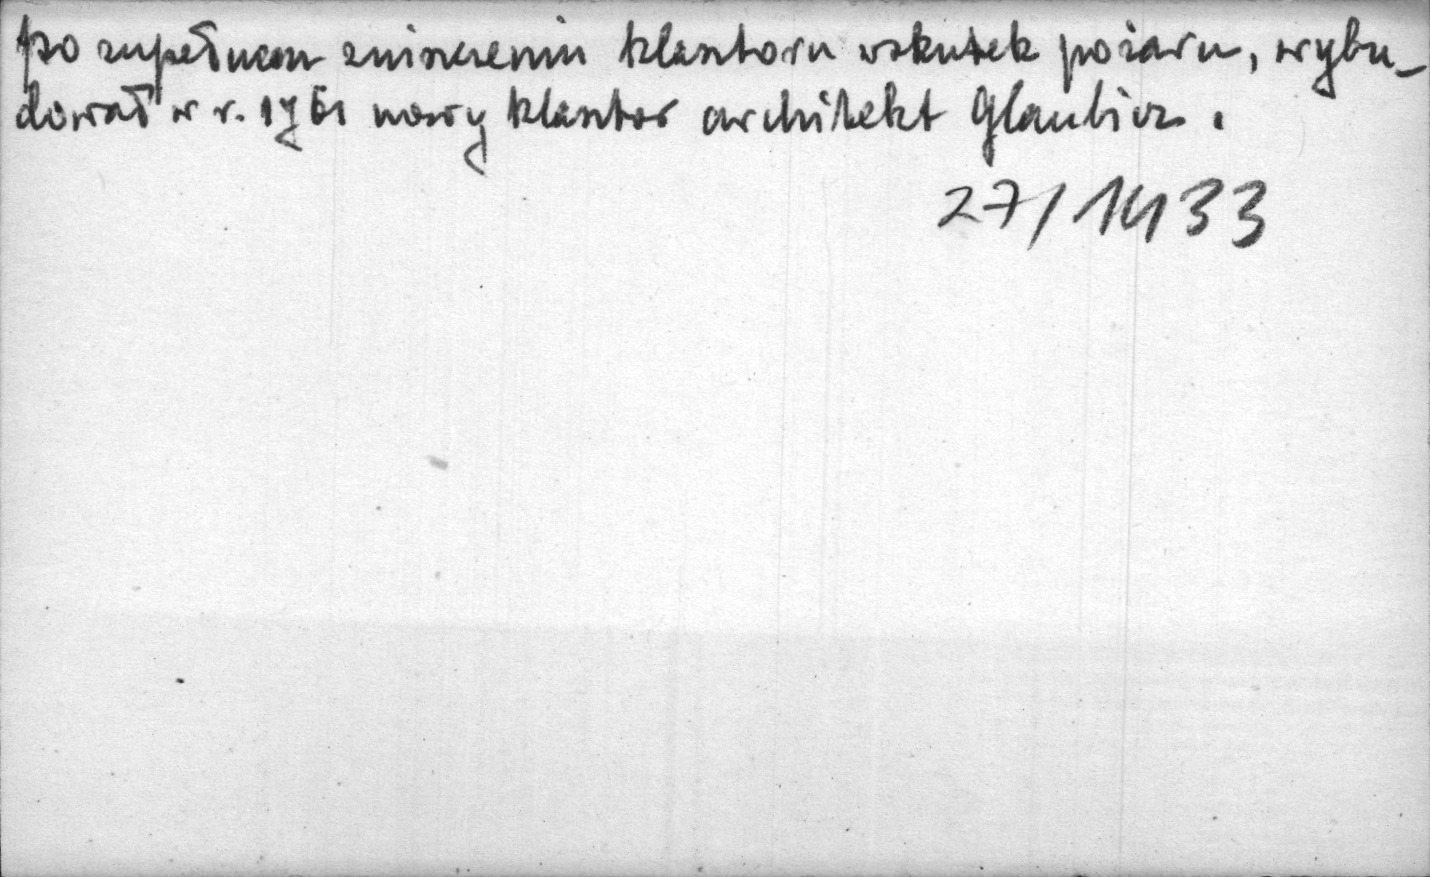 po zupełnem zniszczeniu klasztoru wskutek pożaru, wybu-
dował w r. 1761 nowy klasztor architekt Glaubicz.
27/1433